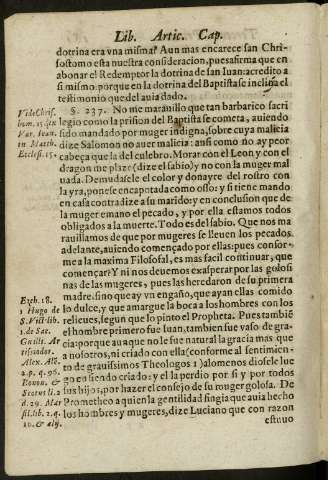 Lib. Artic. Cap.
dotrina era vna misma? Aun mas encarece san Chri-
sostomo esta nuestra consideracion, pues afirma que en
abonar el Redemptor la dotrina de san Iuan: acredito a
si mismo: porque en la dotrina del Baptista se inclusa el
testimonio que del auia dado.
Vide Chris.
hom. 25. in
Mar. Ioan.
in Matth.
Eccles. 25.
S. 237. No me marauillo que tan barbarico sacri
legio como la prision del Baptista se cometa, auiendo
sido mandado por muger indigna, sobre cuya malicia
dize Salomon no auer malicia: ansi como no ay peor
cabeça que la del culebro. Morar con el Leon y con el
dragon me plaze (dize el sabio) y no con la muger mal
uada. Demudasele el color y donayre del rostro con
la yra, ponese encapotada como osso: y si tiene mando
en casa contradize a su marido: y en conclusion que de
la muger emano el pecado, y por ella estamos todos
obligados a la muerte. Todo es del sabio. Que nos ma
rauillamos de que por mugeres se lleuen los pecados
adelante, auiendo començado por ellas: pues confor-
me a la maxima Filosofal, es mas facil continuar, que
començar? Y ni nos deuemos exasperar por las golosi
nas de las mugeres, pues las heredaron de su primera
madre: sino que ay vn engaño, que ayan ellas comido
lo dulce, y que amargue la boca a los hombres con los
relieues, segun que lo pinto el Propheta. Pues tambiē
el hombre primero fue Iuan, tambien fue vaso de gra-
cia: porque aunque no le fue natural la gracia mas que
a nosotros, ni criado con ella (conforme al sentimien-
to de grauissimos Theologos 1) alomenos diosele lue
go en siendo criado: y el la perdio por si y por todos
sus hijos, por hazer el consejo de su rouger golosa. De
Prometheo a quien la gentilidad fingia que auia hecho
los hombres y mugeres, dize Luciano que con razon
Ezch. 18.
1 Hugo de
S. Vict. lib.
1 de Sac.
Guill. Ar
tisiodor.
Alex. Ales
2. p. q. 96.
Bonau. &
Scotus li. 2
d. 29. Mar
sil. lib. 2. q.
20. & alij.
estuuo